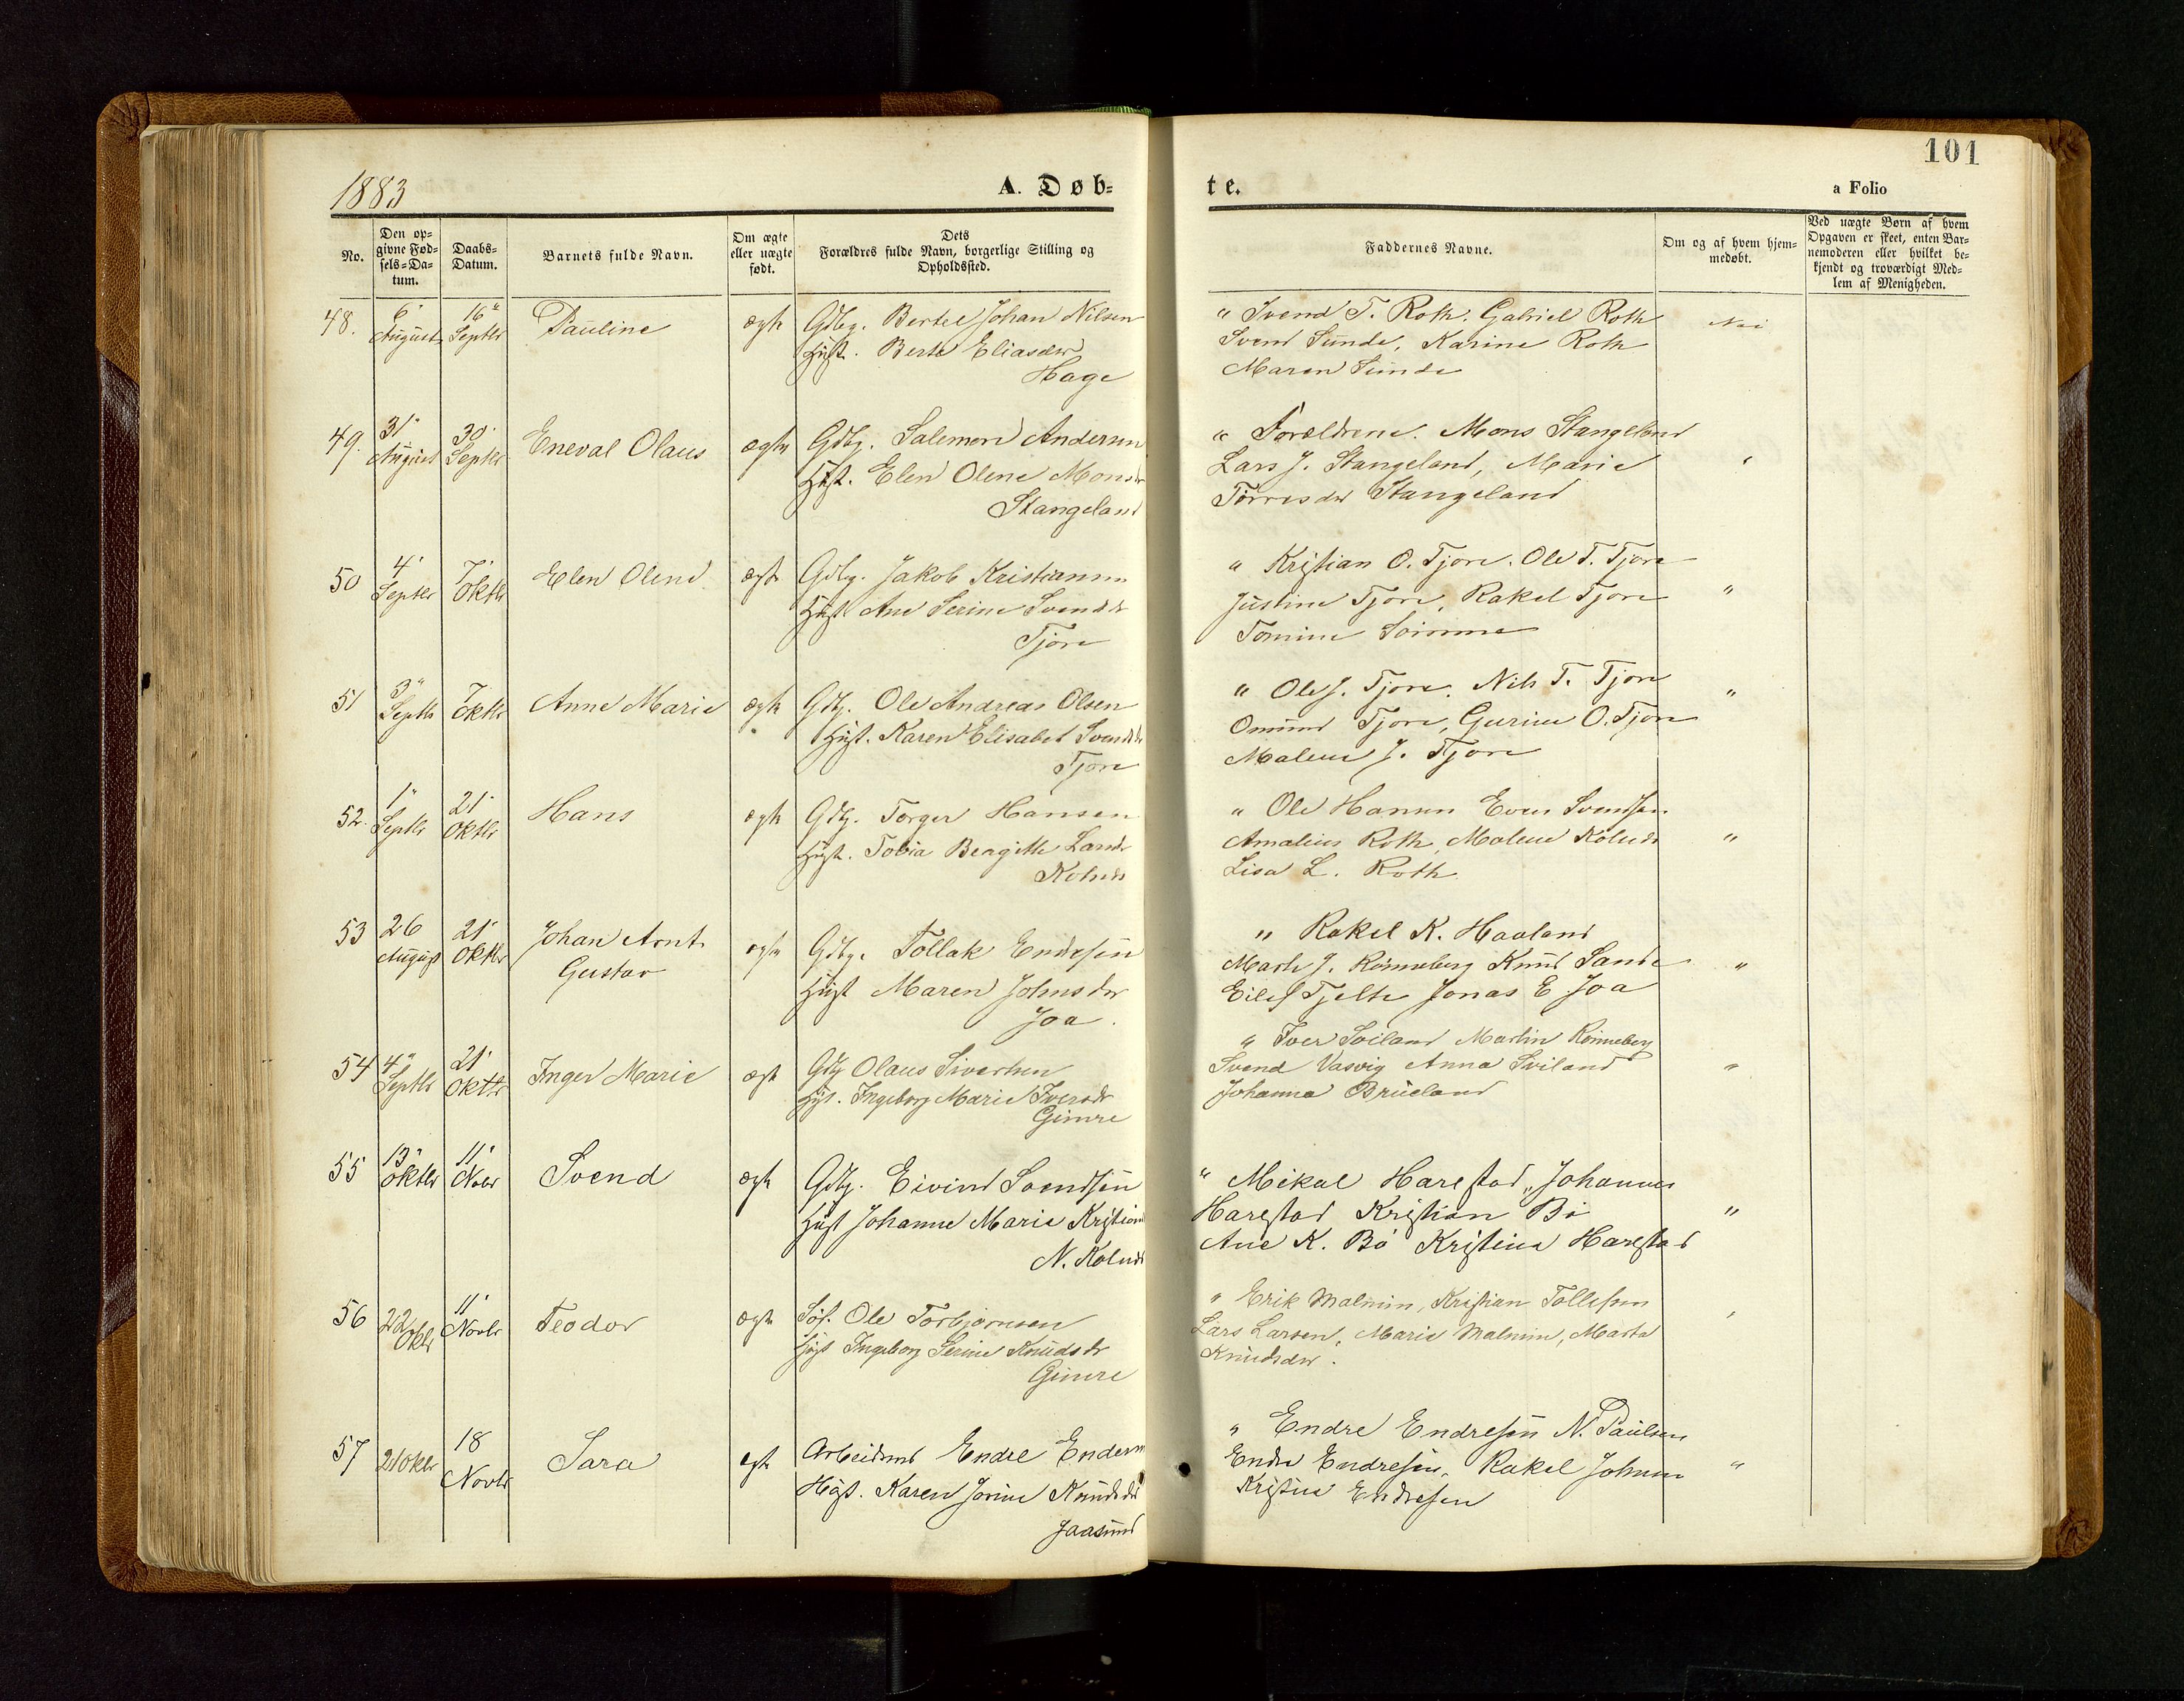 101
1883
A. Døb-
te.
a Folio
No.
Den op-
givne Fød-
sels-Da-
tum.
Daabs-
Datum.
Barnets fulde Navn.
Om ægte
eller uægte
født.
Dets
Forældres fulde Navn, borgerlige Stilling og
Opholdssted.
Faddernes Navne.
Om og af hvem hjem-
medøbt.
Ved uægte Børn af hvem
Opgaven er skeet, enten Bar-
nemoderen eller hvilket be-
kjendt og troværdigt Med-
lem af Menigheden.
48. 6" August 16" Septbr Pauline ægte Gdbg. Bertel Johan Nilsen
Hust. Berte Eliasdr
Hage
" Svend T. Roth. Gabriel Roth Nei
Svend Sunde, Karine Roth
Maren Sunde
49. 31" August 30" Septbr Eneval Olaus ægte Gdbg. Salemon Andersen
Hust. Elen Olene Monsdr
Stangeland
" Forældrene. Mons Stangeland
Lars J. Stangeland, Marie "
Torresdr Stangeland
50 4" Septbr 7" Oktbr Elen Olene ægte Gdbg. Jakob Kristiansen
Hust Ane Serine Svendsdr
Tjore
" Kristian O. Tjore. Ole T. Tjore
Justine Tjore, Rakel Tjore "
Tomine Sømme
51 3" Septbr 7 Oktbr Anne Marie ægte Gdbg. Ole Andreas Olsen
Hust. Karen Elisabet Svendsdr
Tjore
" Ole J. Tjore. Nils T. Tjore "
Omund Tjore, Gurine O. Tjore
Malene J. Tjore
52. 1" Septbr 21" Oktbr Hans ægte Gdbg. Torger Hansen
Hust. Tobia Bergitte Larsdr
Kolnes
" Ole Hansen Even Svendsen
Amalius Roth, Malene Kolnes "
Lisa L. Roth
53 26 August 21" Oktbr Johan Arnt ægte Gdbg. Tollak Endresen
Gustav
Hust Maren Johnsdr
Joa.
" Rakel K. Haaland
Marte J. Rønneberg Knud Sande "
Eilef Tjelte Jonas E Joa
54 4" Septbr 21" Oktbr Inger Marie ægte Gdbg Olaus Sivertsen
Hust. Ingeborg Marie Iversdr
Gimre
" Iver Sviland Martin Rønneberg
Svend Vasvig Anna Sviland "
Johanna Brueland
55 13" Oktbr 11" Novbr Svend ægte Gdbg. Eivind Svendsen
Hust Johanne Marie Kristiansdr
N. Kolnes
" Mikal Harestad, Johannes
Harestad Kristian Bø "
Ane K. Bø Kristina Harestad
56 22 Oktbr 11" Novbr Teodor ægte Søf. Ole Torbjørnsen
Hust Ingeborg Serine Knudsdr
Gimre
" Erik Malmin, Kristian Tollefsen "
Lars Larsen, Marie Malmin, Marta
Knudsdr.
57 21 Oktbr 18 Novbr Sara ægte Arbeidsmd Endre Endresen
Hust. Karen Jorine Knudsdr
Jaasund
" Endre Endresen N. Paulsen
Endre Endresen, Rakel Johnsen "
Kristine Endresen